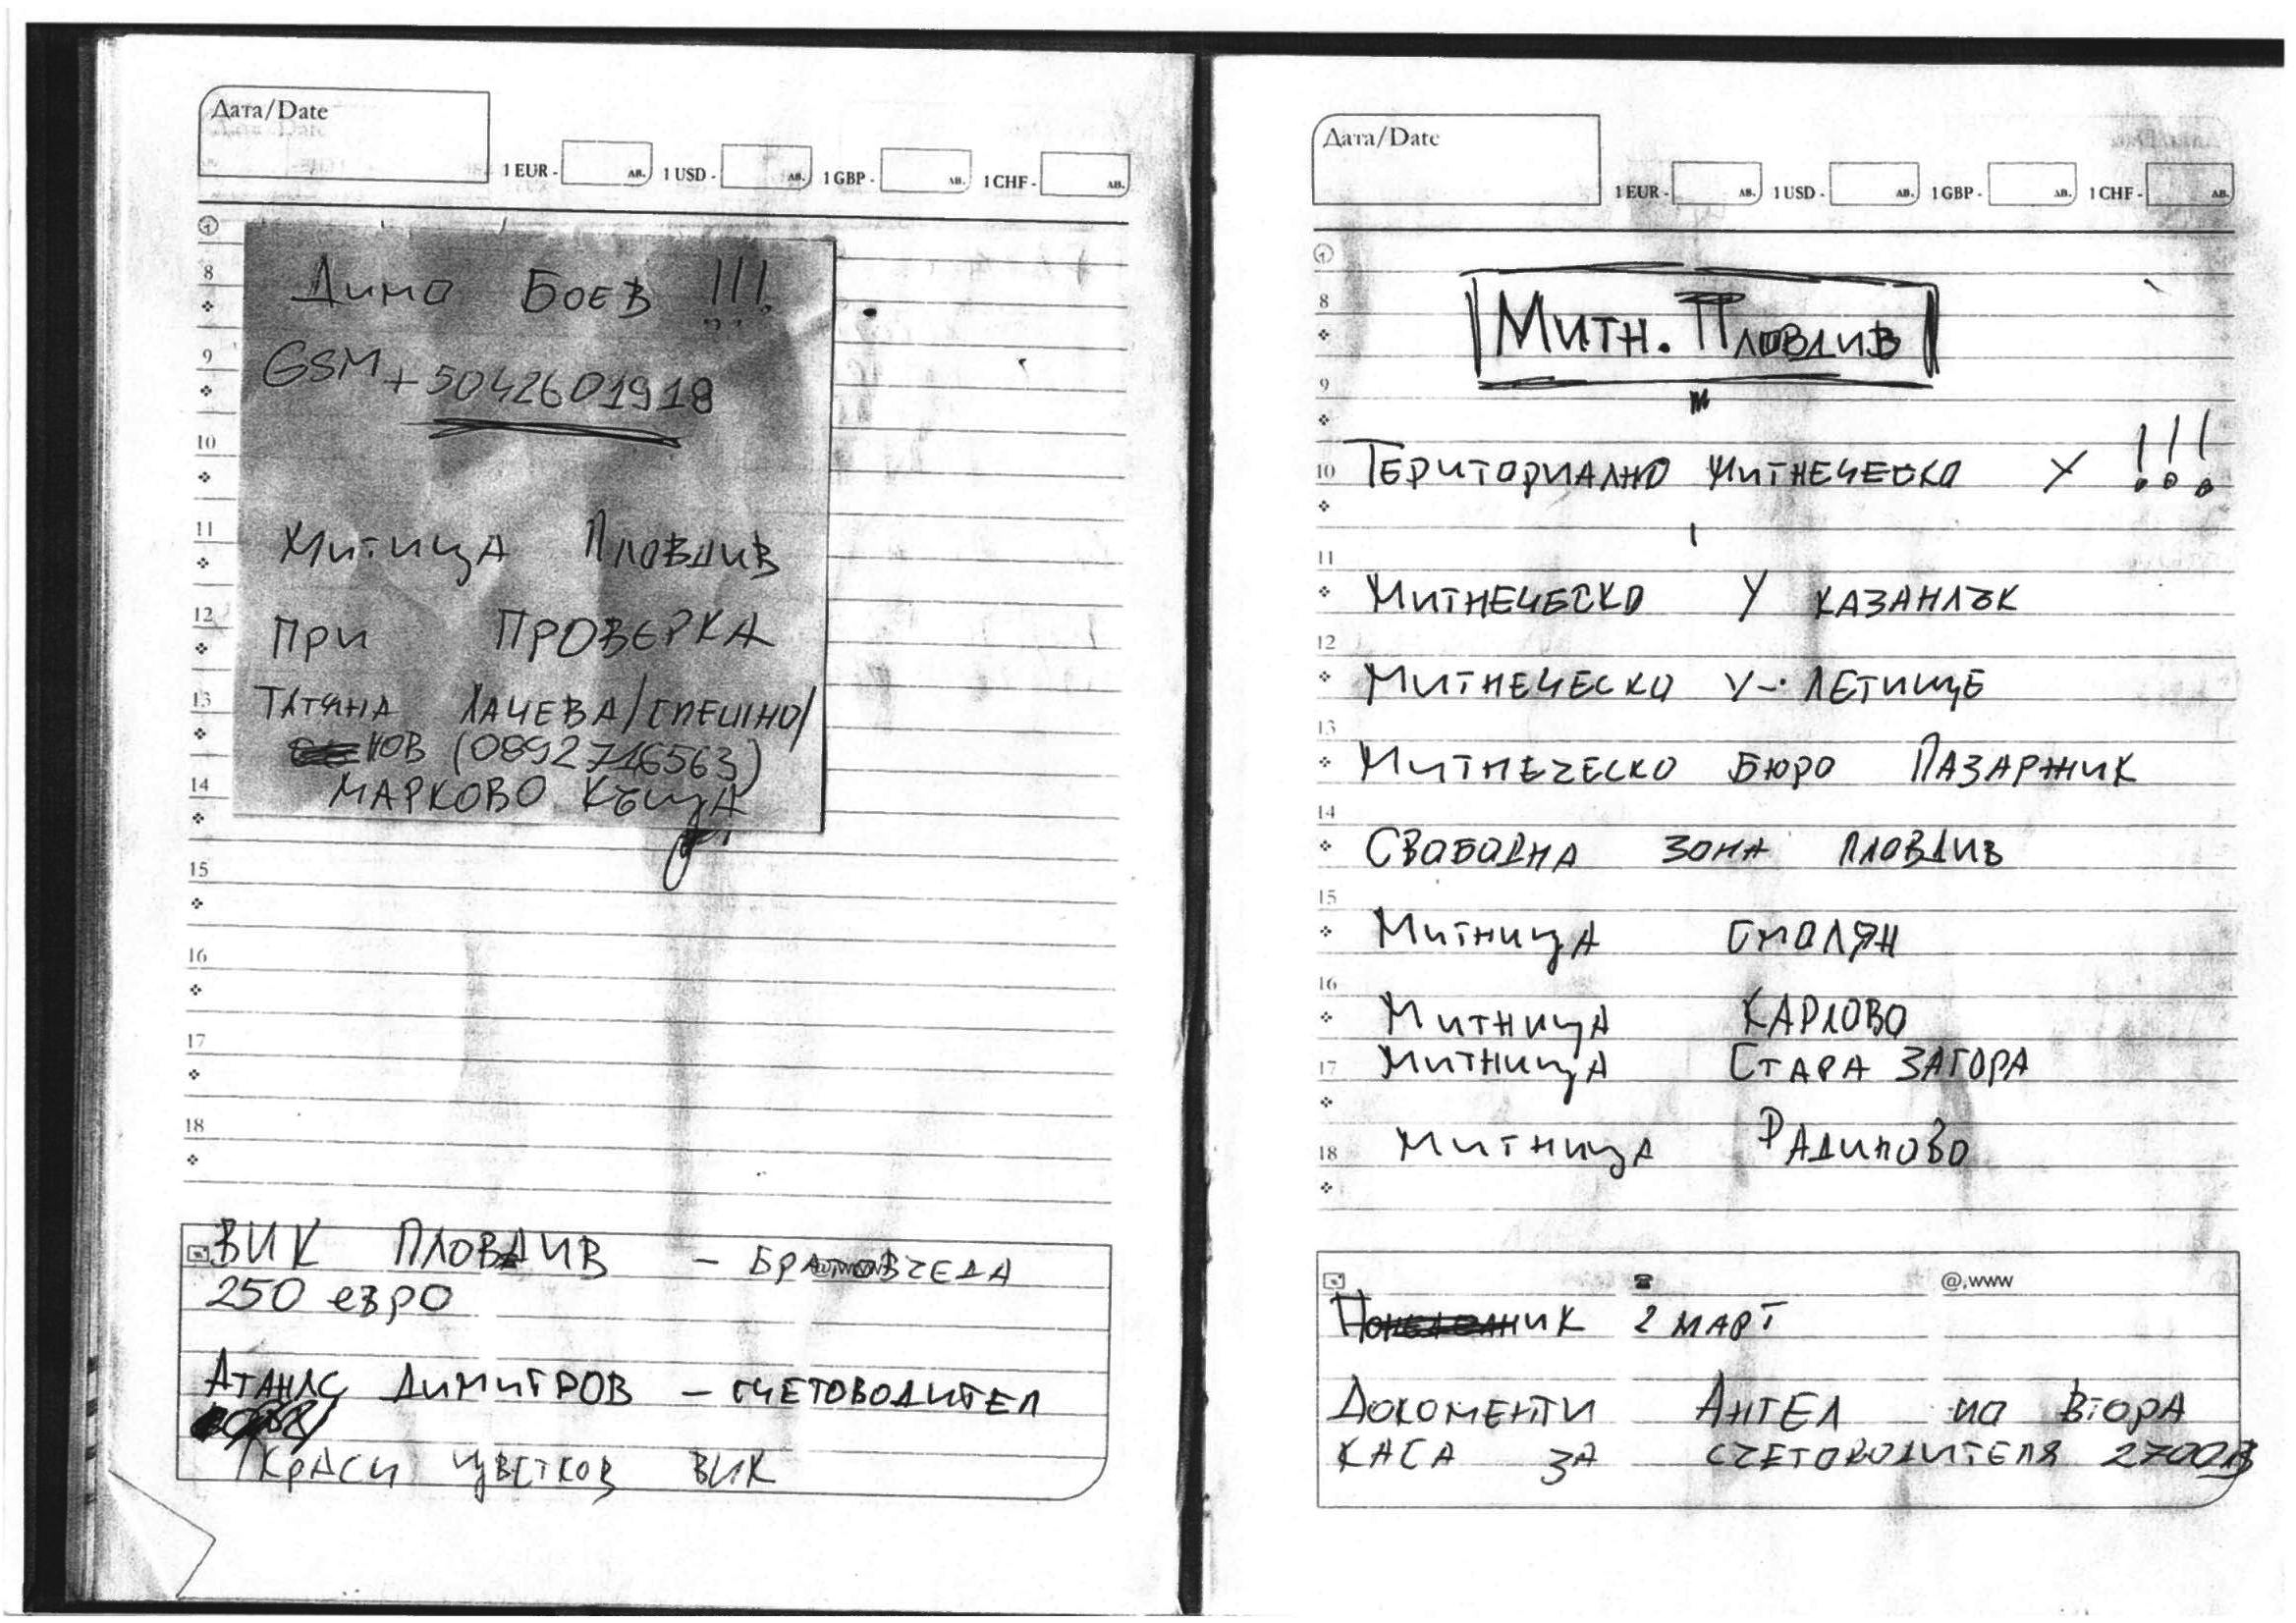 Дата/Date
1 EUR - лв. 1 USD - лв. 1 GBP - лв. 1 CHF - лв.
Димо Боев !!!
GSM +5042601918
Митница Пловдив
При ПРОВЕРКА
ТАТЯНА ЛАЧЕВА/СПЕШНО/
НОВ (0892716563)
МАРКОВО КЪЩА
7
8
9
10
11
12
13
14
15
16
17
18
ВИК ПЛОВДИВ – БРАТОВЧЕДА
250 евро
АТАНАС ДИМИТРОВ – СЧЕТОВОДИТЕЛ
КРАСИ ЦВЕТКОВ ВИК
Дата/Date
1 EUR - лв. 1 USD - лв. 1 GBP - лв. 1 CHF - лв.
7
8 МИТН. ПЛОВДИВ
9
10 ТЕРИТОРИАЛНО МИТНЕЧЕСКО У !!!
11
МИТНЕЧЕСКО У КАЗАНЛЪК
12
МИТНЕЧЕСКО У-. ЛЕТИЩЕ
13
МИТНЕЧЕСКО БЮРО ПАЗАРЖИК
14
СВОБОДНА ЗОНА ПЛОВДИВ
15
МИТНИЦА СМОЛЯН
16
МИТНИЦА КАРЛОВО
17 МИТНИЦА СТАРА ЗАГОРА
18 МИТНИЦА РАДИНОВО
@,www
ПОНЕДЕЛНИК 2 МАРТ
ДОКОМЕНТИ АНГЕЛ на ВТОРА
КАСА ЗА СЧЕТОВОДИТЕЛЯ 2700лв